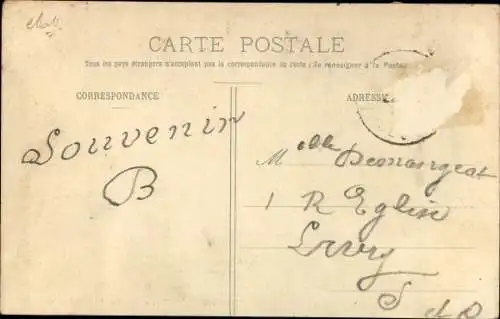 CARTE POSTALE
Tous les pays étrangers n'acceptent pas la correspondance au recto (Se renseigner à la Poste)
CORRESPONDANCE
ADRESSE
Souvenir
B
Melle Demangeat
1 R Eglise
Ivry
S